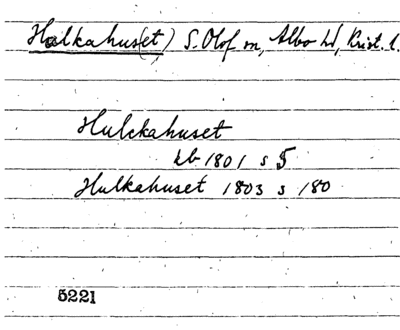 Hulkahus(et) S. Olof sn, Albo hd, Krist. l.
Hulckahuset
kb 1801 s 5
Hulkahuset 1803 s 180
5221